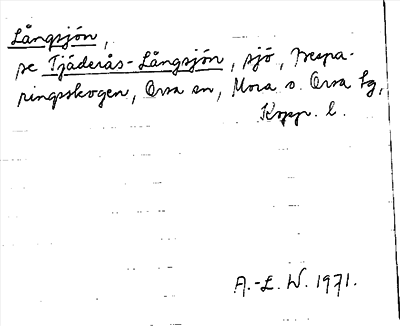 Långsjön,
se Tjäderås-Långsjön, sjö, Bespa-
ringsskogen, Orsa sn, Mora o. Orsa tg,
Kopp. l.
A.-L. W. 1971.